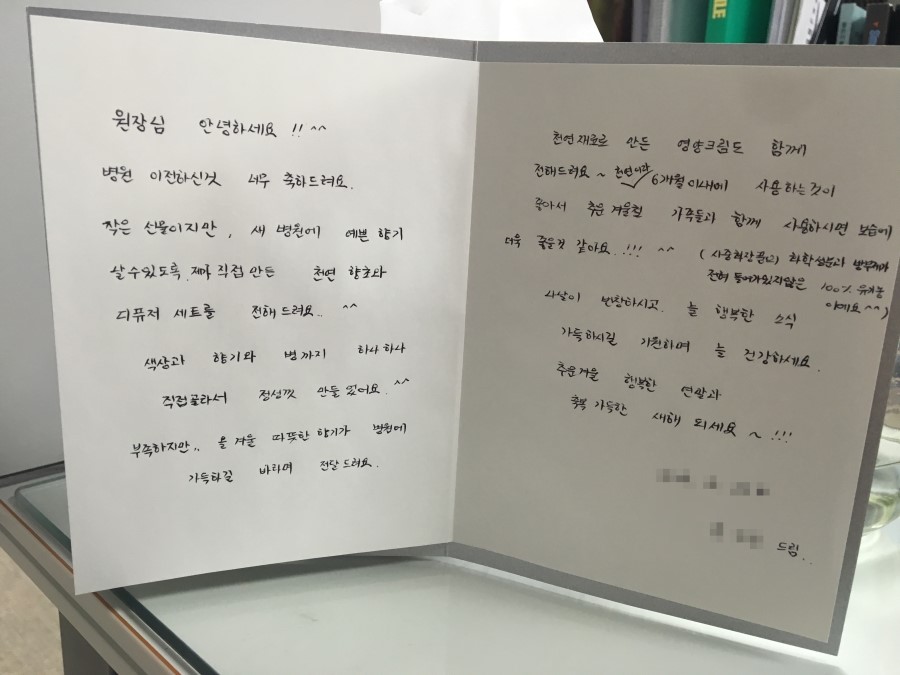 원장님 안녕하세요!! ^^
병원 이전하신것 너무 축하드려요.
작은 선물이지만, 새 병원에 예쁜 향기
날수있도록 제가 직접 만든 천연 향초와
디퓨저 세트를 전해 드려요.. ^^
색상과 향기와 병까지 하나하나
직접골라서 정성껏 만들었어요. ^^
부족하지만.. 올 겨울 따뜻한 향기가 병원에
가득하길 바라며 전달드려요.
천연재료로 만든 영양크림도 함께
전해드려요~ 천연이라 6개월이내에 사용하는것이
좋아서 추운 겨울철 가족들과 함께 사용하시면 보습에
더욱 좋을것 같아요.!!! ^^ (시중화장품의 화학성분과 방부제가
전혀 들어가있지않은 100% 유기농
이예요^^)
나날이 번창하시고. 늘 행복한 소식
가득하시길 기원하며 늘 건강하세요.
추운겨울 행복한 연말과
축복 가득한 새해 되세요~!!!
드림..